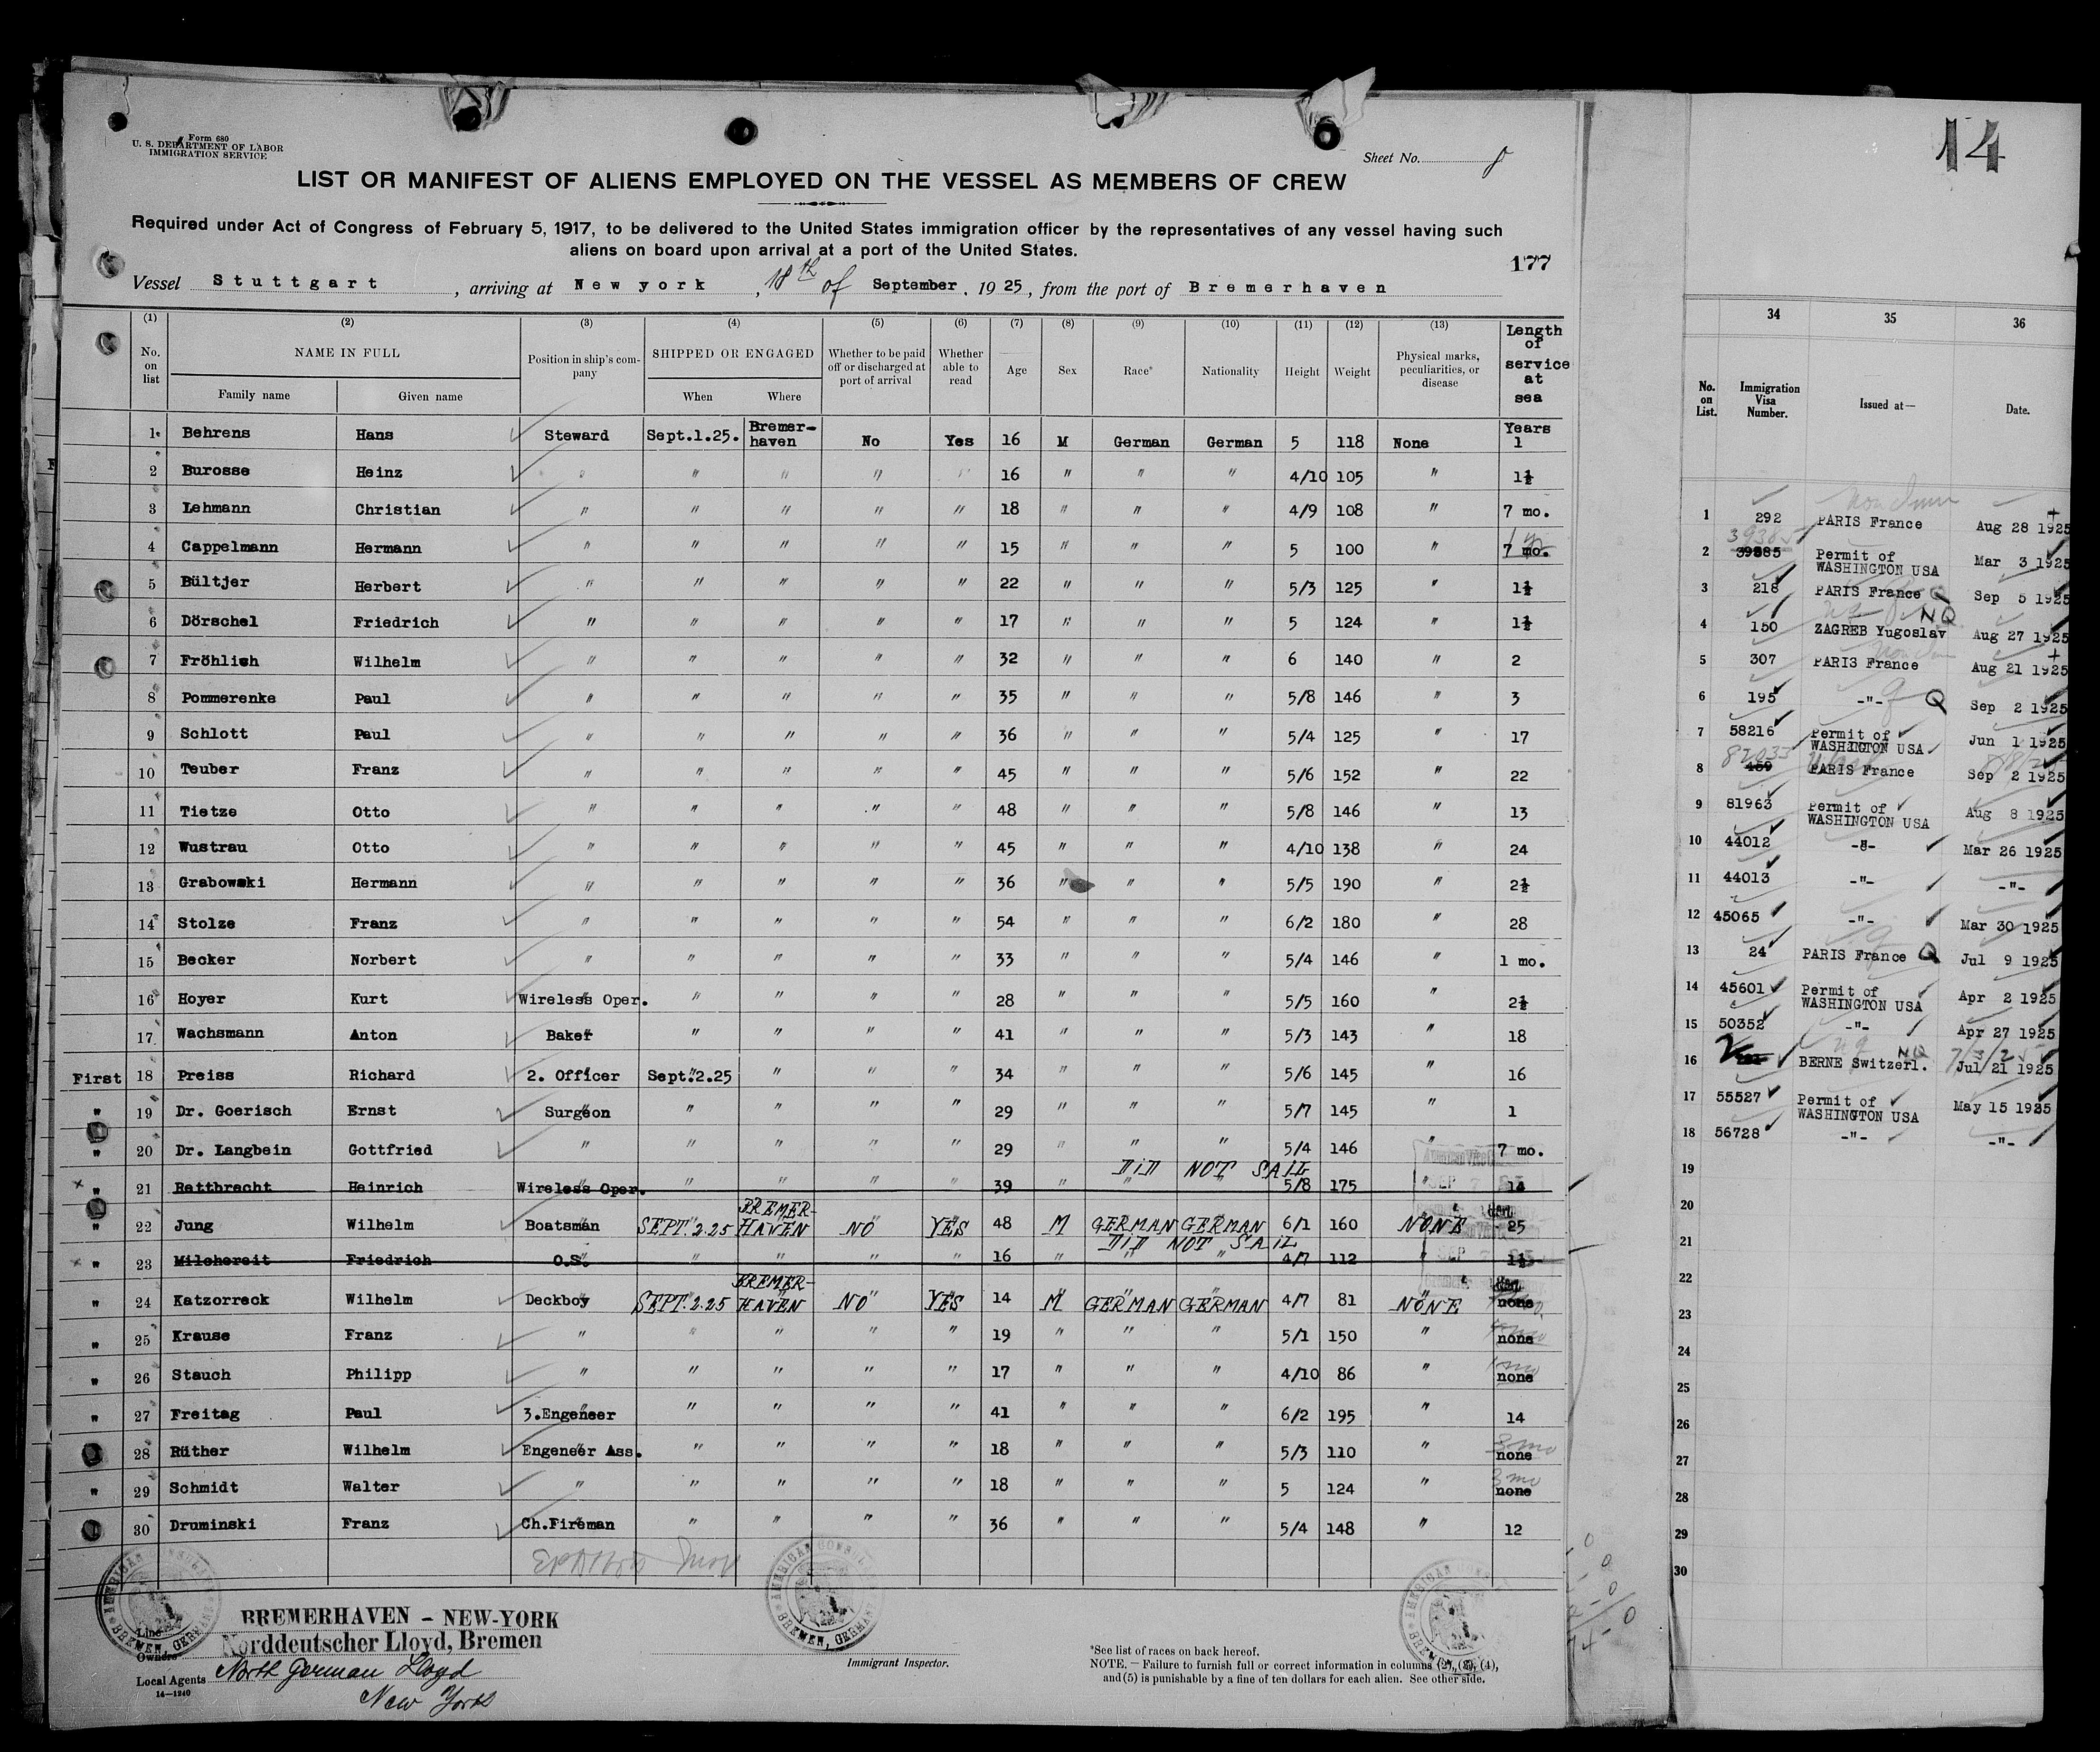 Form 680
U. S. DEPARTMENT OF LABOR
IMMIGRATION SERVICE
Sheet No. 8
LIST OR MANIFEST OF ALIENS EMPLOYED ON THE VESSEL AS MEMBERS OF CREW
Required under Act of Congress of February 5, 1917, to be delivered to the United States immigration officer by the representatives of any vessel having such
aliens on board upon arrival at a port of the United States.
177
Vessel Stuttgart, arriving at New york, 18th of September, 1925, from the port of Bremerhaven
(1) (2) (3) (4) (5) (6) (7) (8) (9) (10) (11) (12) (13)
No. on list NAME IN FULL Family name Given name Position in ship's company SHIPPED OR ENGAGED When Where Whether to be paid off or discharged at port of arrival Whether able to read Age Sex Race* Nationality Height Weight Physical marks, peculiarities, or disease Length of service at sea
1 Behrens Hans Steward Sept.1.25. Bremerhaven No Yes 16 M German German 5 118 None Years 1
2 Burosse Heinz " " " " " 16 " " " 4/10 105 " 1½
3 Lehmann Christian " " " " " 18 " " " 4/9 108 " 7 mo.
4 Cappelmann Hermann " " " " " 15 " " " 5 100 " 7 mo. 1 yr
5 Bültjer Herbert " " " " " 22 " " " 5/3 125 " 1½
6 Dörschel Friedrich " " " " " 17 " " " 5 124 " 1½
7 Fröhlich Wilhelm " " " " " 32 " " " 6 140 " 2
8 Pommerenke Paul " " " " " 35 " " " 5/8 146 " 3
9 Schlott Paul " " " " " 36 " " " 5/4 125 " 17
10 Teuber Franz " " " " " 45 " " " 5/6 152 " 22
11 Tietze Otto " " " " " 48 " " " 5/8 146 " 13
12 Wustrau Otto " " " " " 45 " " " 4/10 138 " 24
13 Grabowski Hermann " " " " " 36 " " " 5/5 190 " 2½
14 Stolze Franz " " " " " 54 " " " 6/2 180 " 28
15 Becker Norbert " " " " " 33 " " " 5/4 146 " 1 mo.
16 Hoyer Kurt Wireless Oper. " " " " 28 " " " 5/5 160 " 2½
17 Wachsmann Anton Baker " " " " 41 " " " 5/3 143 " 18
First 18 Preiss Richard 2. Officer Sept.2.25 " " " 34 " " " 5/6 145 " 16
" 19 Dr. Goerisch Ernst Surgeon " " " " 29 " " " 5/7 145 " 1
" 20 Dr. Langbein Gottfried " " " " " 29 " " " 5/4 146 " 7 mo.
DID NOT SAIL
" 21 Rattbrecht Heinrich Wireless Oper. " " " " 39 " " " 5/8 175 " 14
" 22 Jung Wilhelm Boatsman SEPT.2.25 BREMER-HAVEN NO YES 48 M GERMAN GERMAN 6/1 160 NONE 25
DID NOT SAIL
" 23 Milchereit Friedrich O.S. " " " " 16 " " " 4/7 112 " 1½
" 24 Katzorreck Wilhelm Deckboy SEPT.2.25 BREMER-HAVEN NO YES 14 M GERMAN GERMAN 4/7 81 NONE none
" 25 Krause Franz " " " " " 19 " " " 5/1 150 " none
" 26 Stauch Philipp " " " " " 17 " " " 4/10 86 " none 1 mo
" 27 Freitag Paul 3.Engeneer " " " " 41 " " " 6/2 195 " 14
" 28 Rüther Wilhelm Engeneer Ass. " " " " 18 " " " 5/3 110 " none 3 mo
" 29 Schmidt Walter " " " " " 18 " " " 5 124 " none 3 mo
" 30 Druminski Franz Ch.Fireman " " " " 36 " " " 5/4 148 " 12
AMERICAN CONSUL BREMEN, GERMANY
Line BREMERHAVEN - NEW-YORK
Owners Norddeutscher Lloyd, Bremen
Local Agents North German Lloyd
New York
14—1240
Immigrant Inspector.
*See list of races on back hereof.
NOTE.—Failure to furnish full or correct information in columns (2), (3), (4),
and (5) is punishable by a fine of ten dollars for each alien. See other side.
14
34 35 36
No. on List. Immigration Visa Number. Issued at— Date.
1 292 PARIS France Aug 28 1925
2 39885 Permit of WASHINGTON USA Mar 3 1925
3 218 PARIS France Sep 5 1925
4 150 ZAGREB Yugoslav NQ Aug 27 1925
5 307 PARIS France Aug 21 1925
6 195 -"- Q Sep 2 1925
7 58216 Permit of WASHINGTON USA Jun 1 1925
8 459 82033 PARIS France Sep 2 1925
9 81963 Permit of WASHINGTON USA Aug 8 1925
10 44012 -"- Mar 26 1925
11 44013 -"- -"-
12 45065 -"- Mar 30 1925
13 24 PARIS France Q Jul 9 1925
14 45601 Permit of WASHINGTON USA Apr 2 1925
15 50352 -"- Apr 27 1925
16 BERNE Switzerl. NQ 7/3/25 Jul 21 1925
17 55527 Permit of WASHINGTON USA May 15 1925
18 56728 -"- -"-
19
20
21
22
23
24
25
26
27
28
29
30